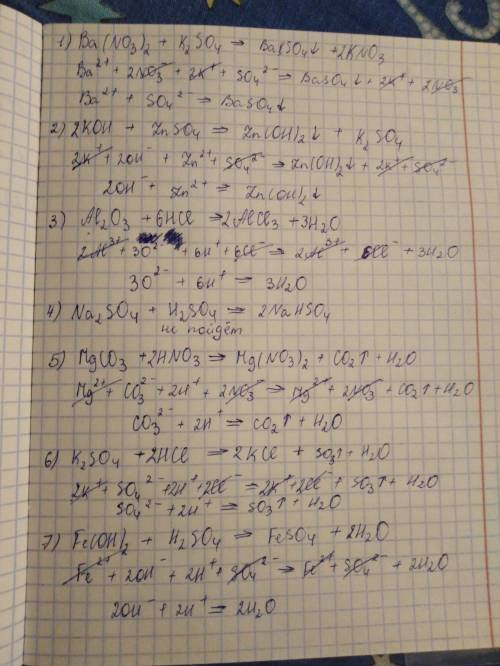 1) Ba(NO₃)₂ + K₂SO₄ ⇒ BaSO₄↓ + 2KNO₃
Ba²⁺ + 2NO₃⁻ + 2K⁺ + SO₄²⁻ ⇒ BaSO₄↓ + 2K⁺ + 2NO₃⁻
Ba²⁺ + SO₄²⁻ ⇒ BaSO₄↓
2) 2KOH + ZnSO₄ ⇒ Zn(OH)₂↓ + K₂SO₄
2K⁺ + 2OH⁻ + Zn²⁺ + SO₄²⁻ ⇒ Zn(OH)₂↓ + 2K⁺ + SO₄²⁻
2OH⁻ + Zn²⁺ ⇒ Zn(OH)₂↓
3) Al₂O₃ + 6HCl ⇒ 2AlCl₃ + 3H₂O
2Al³⁺ + 3O²⁻ + 6H⁺ + 6Cl⁻ ⇒ 2Al³⁺ + 6Cl⁻ + 3H₂O
3O²⁻ + 6H⁺ = 3H₂O
4) Na₂SO₄ + H₂SO₄ ⇒ 2NaHSO₄
не пойдёт
5) MgCO₃ + 2HNO₃ ⇒ Mg(NO₃)₂ + CO₂↑ + H₂O
Mg²⁺ + CO₃²⁻ + 2H⁺ + 2NO₃⁻ ⇒ Mg²⁺ + 2NO₃⁻ + CO₂↑ + H₂O
CO₃²⁻ + 2H⁺ ⇒ CO₂↑ + H₂O
6) K₂SO₄ + 2HCl ⇒ 2KCl + SO₃↑ + H₂O
2K⁺ + SO₄²⁻ + 2H⁺ + 2Cl⁻ ⇒ 2K⁺ + 2Cl⁻ + SO₃↑ + H₂O
SO₄²⁻ + 2H⁺ ⇒ SO₃↑ + H₂O
7) Fe(OH)₂ + H₂SO₄ ⇒ FeSO₄ + 2H₂O
Fe²⁺ + 2OH⁻ + 2H⁺ + SO₄²⁻ ⇒ Fe²⁺ + SO₄²⁻ + 2H₂O
2OH⁻ + 2H⁺ ⇒ 2H₂O